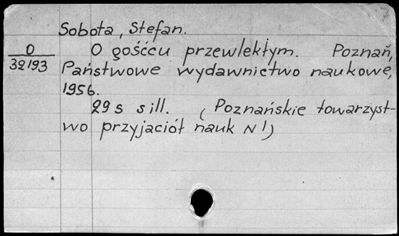 Sobota, Stefan.
O
32193
O gośćcu przewlekłym. Poznań,
Państwowe wydawnictwo naukowe,
1956.
29 s sill. (Poznańskie towarzyst-
wo przyjaciół nauk N 1)